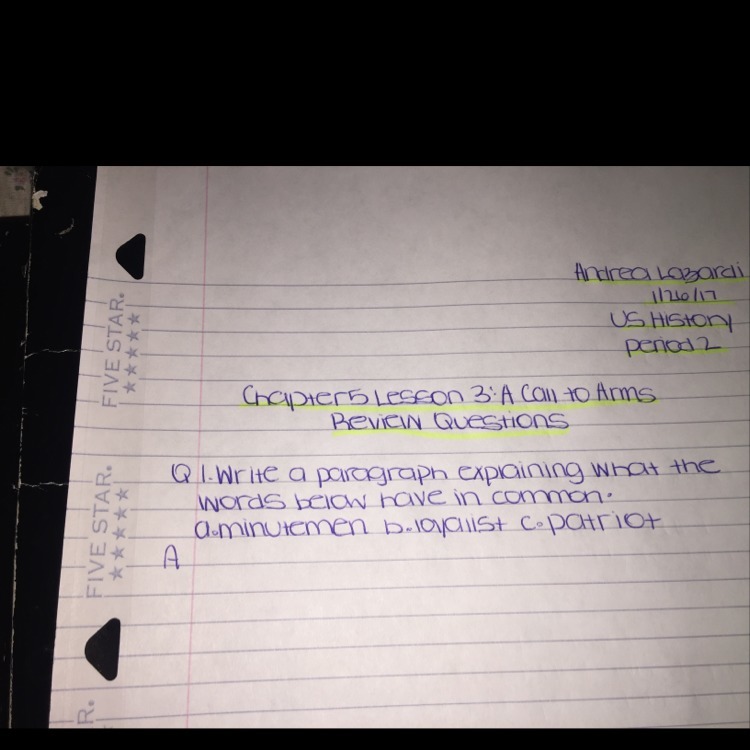 Andrea Lozardi
1/26/17
US History
period 2
Chapter 5 Lesson 3: A Call to Arms
Review Questions
Q 1. Write a paragraph explaining what the
words below have in common.
a. minutemen b. loyalist c. patriot
A
FIVE STAR.
FIVE STAR.
R.